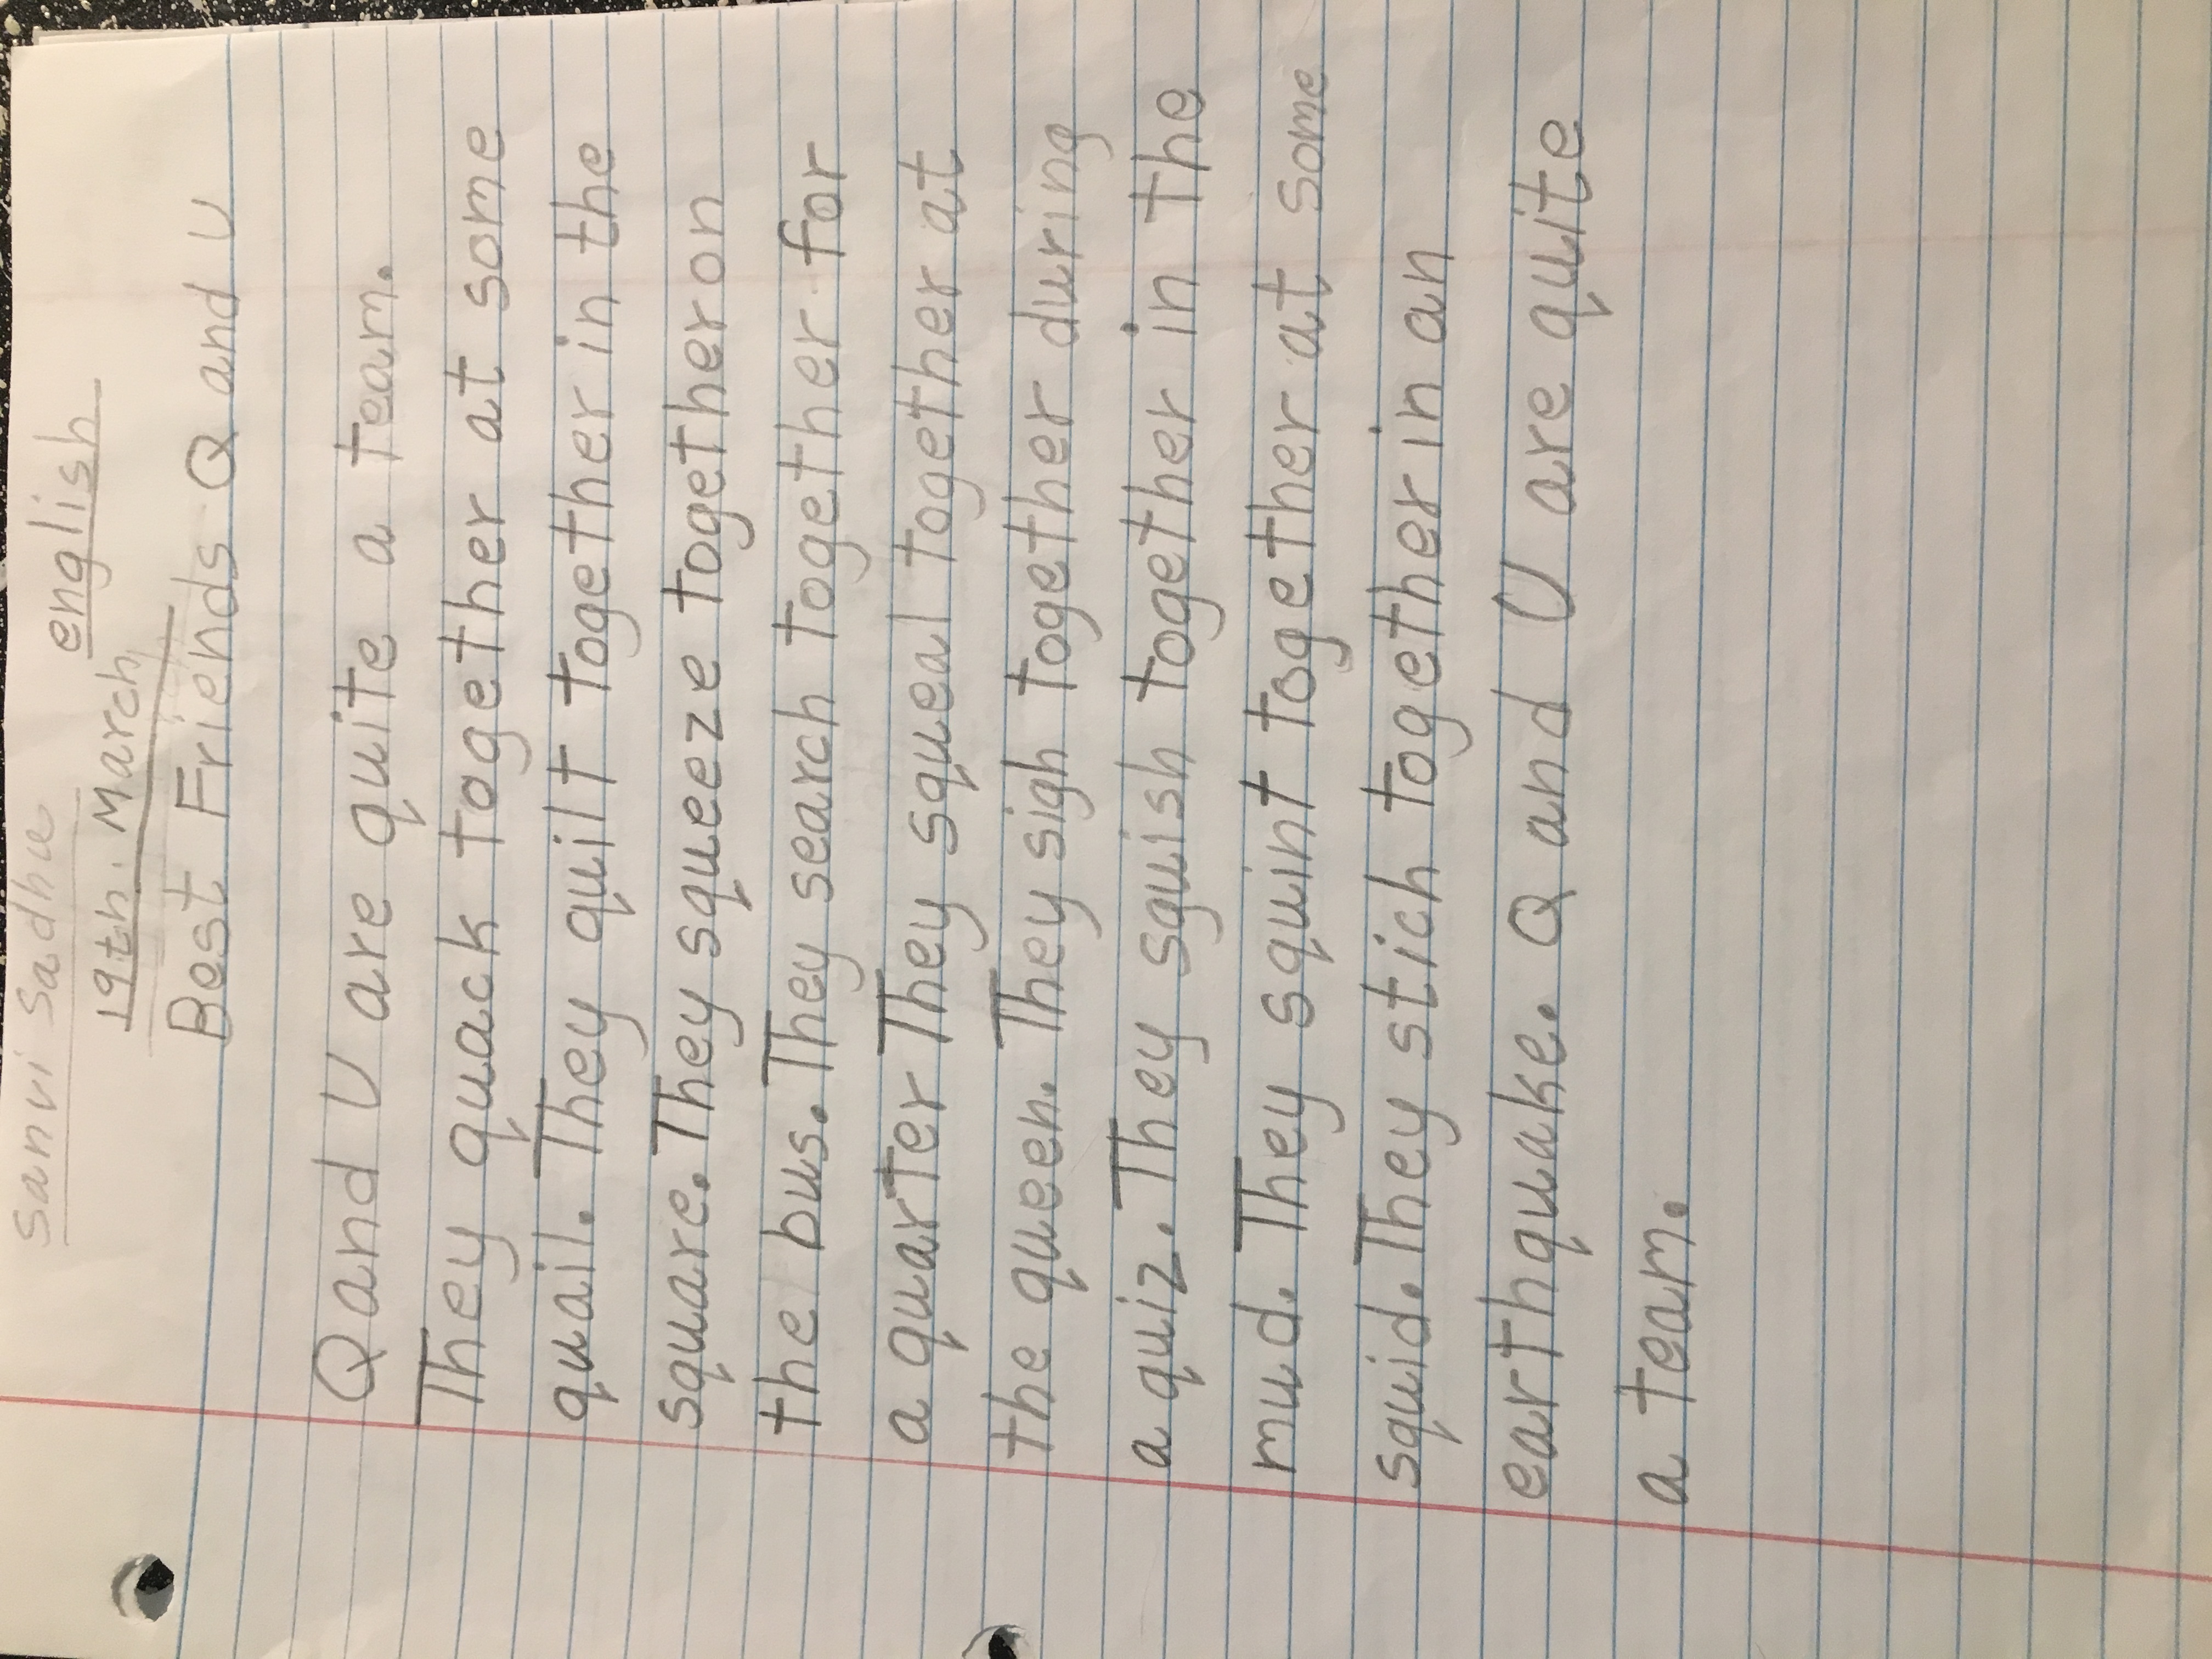 Sanvi Sadhu
english
19th. March
Best Friends Q and U
Q and U are quite a team.
They quack together at some
quail. They quilt together in the
square. They squeeze together on
the bus. They search together for
a quarter They squeal together at
the queen. They sigh together during
a quiz. They squish together in the
mud. They squint together at some
squid. They stich together in an
earthquake. Q and U are quite
a team.